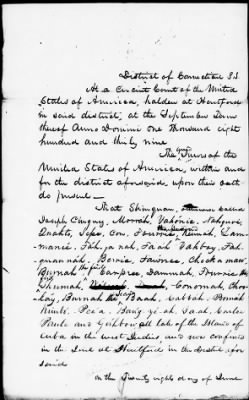 District of Connecticut SS.
At a Circuit Court of the United
States of America, holden at Hartford
in said district, at the September Term
thereof Anno Domini one thousand eight
hundred and thirty nine
The Grand Jurors of the
United States of America, within and
for the district aforesaid upon their oath
do present —
That Shinquau, called
Joseph Cinquy, Morrah, Yahome, Nahquoi,
Quahto, Con, Fawnie, Kimmah, Lam-
manie, Fah-ja-nah, Faah Yahboy, Fah-
quannah, Berrie, Fawnee, Chockamaw,
Burnah the first Carpree, Dammah,
Shumah Conomah, Choo-
lay, Burnah the Second Baah, Cabbah,
Kimbo, Peeia, Bang-ye-ah, Saah, Carlee
all late of the Island of
Cuba in the West Indies and now confined
in the Jail at Hartford in the district afore
said
on the Twenty eighth day of June